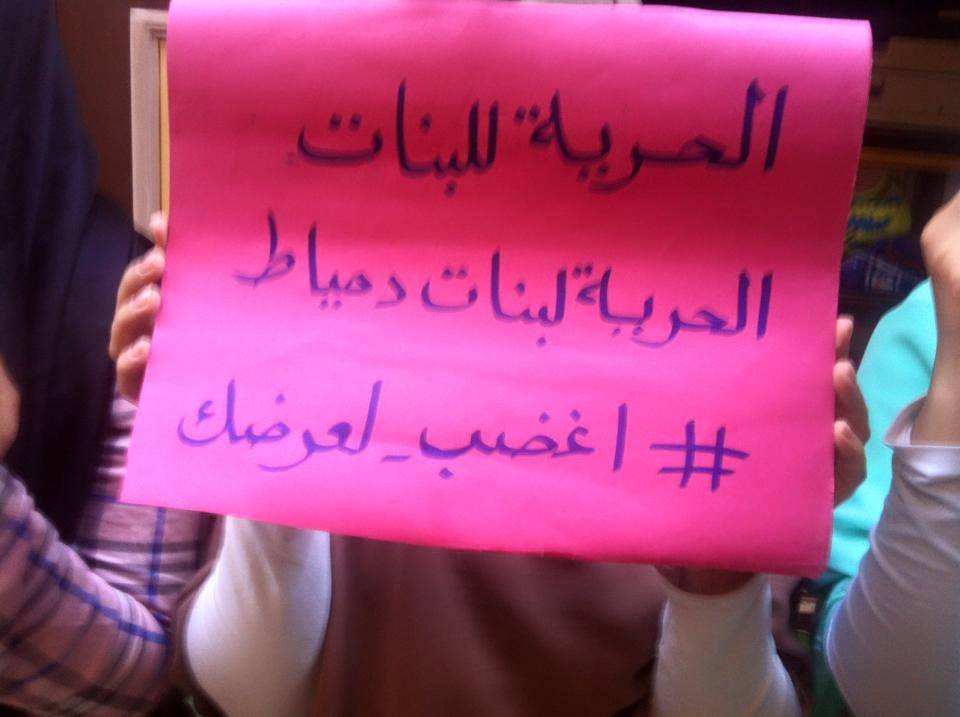 الحرية للبنات
الحرية لبنات دمياط
#اغضب_لعرضك